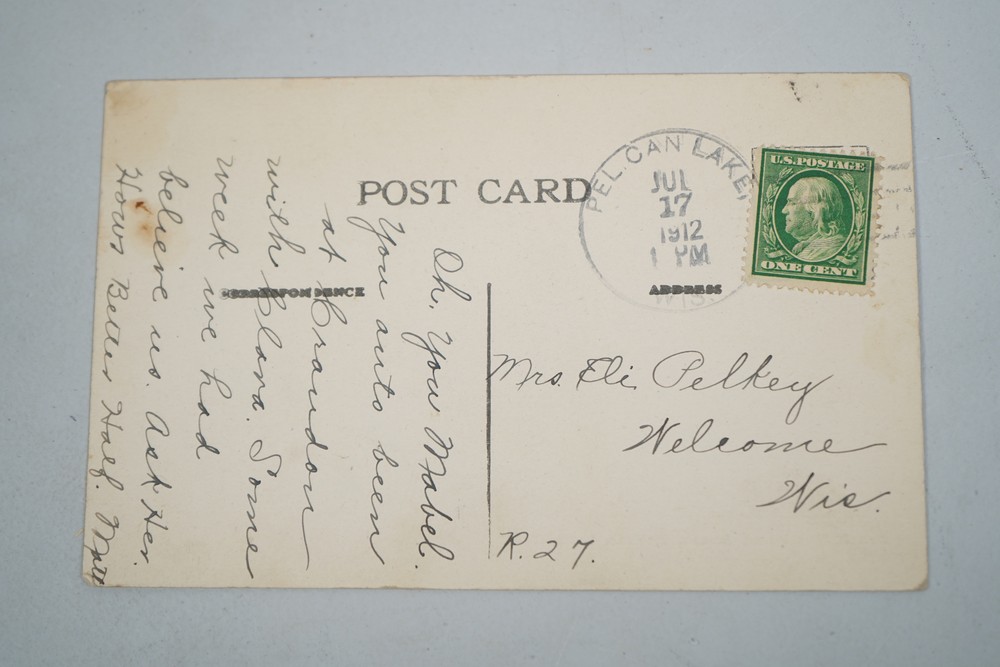 POST CARD
CORRESPONDENCE
ADDRESS
PELICAN LAKE,
JUL
17
1912
1 PM
WIS.
U.S. POSTAGE
ONE CENT
Oh, You Mabel.
You auto been
at Crandon
with Clara. Some
week we had
believe us. Ask Her.
Hows Better Half.
Mrs. Eli Pelkey
Welcome
Wis.
R. 27.